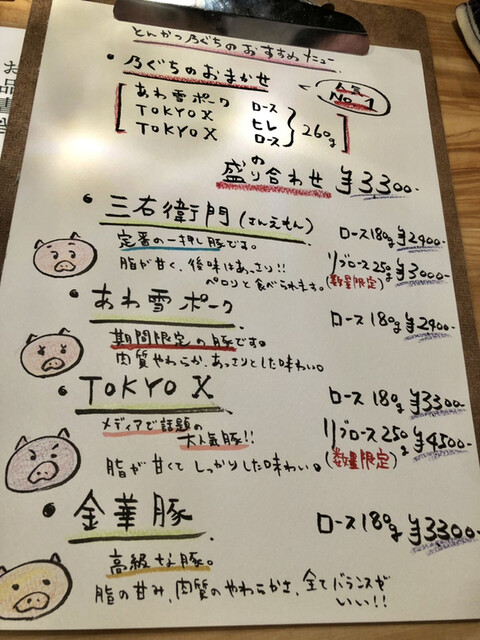 とんかつ乃ぐちのおすすめメニュー
・乃ぐちのおまかせ
人気 No.1
あわ雪ポーク ロース
TOKYO X ヒレ 260g
TOKYO X ロース
の
盛り合わせ ¥3300-
・三右衛門(さんえもん) ロース180g ¥2900-
定番の一押し豚です。 リブロース250g ¥3000-
脂が甘く、後味はあっさり!! (数量限定)
ペロリと食べられます。
・あわ雪ポーク ロース180g ¥2900-
期間限定の豚です。
肉質やわらか、あっさりとした味わい。
・TOKYO X ロース180g ¥3300-
メディアで話題の リブロース250g ¥4500-
大人気豚!! (数量限定)
脂が甘くてしっかりした味わい。
・金華豚 ロース180g ¥3300-
高級な豚。
脂の甘み、肉質のやわらかさ、全てバランスが
いい!!